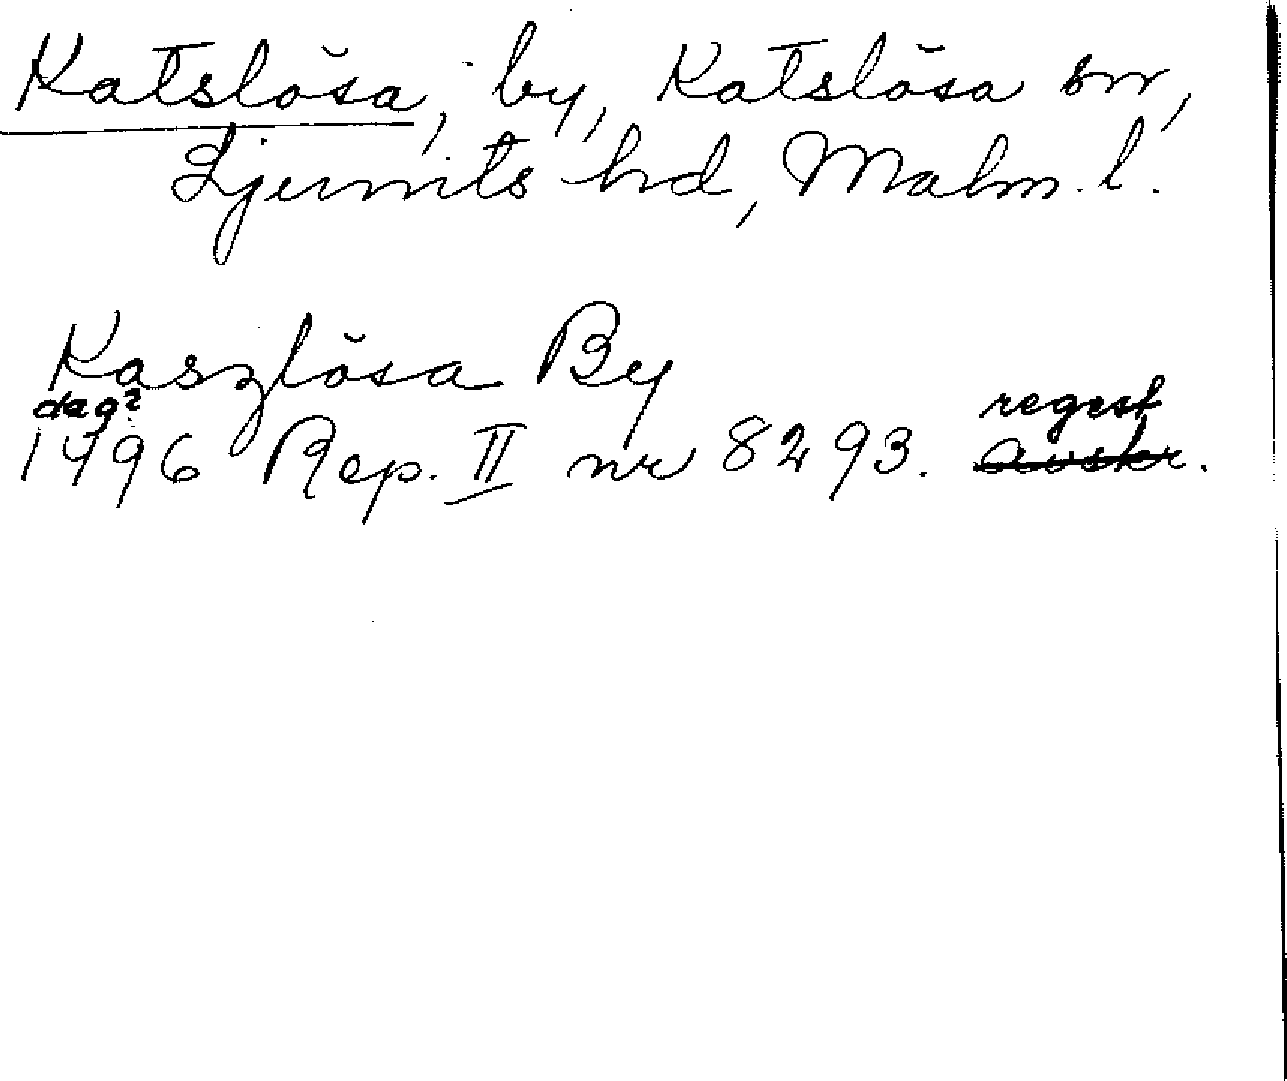 Katslösa, by, Katslösa sn,
Ljunits hd, Malm. l.
Kaszlösa By
dag? regest
1496 Rep. II nr 8293. avskr.